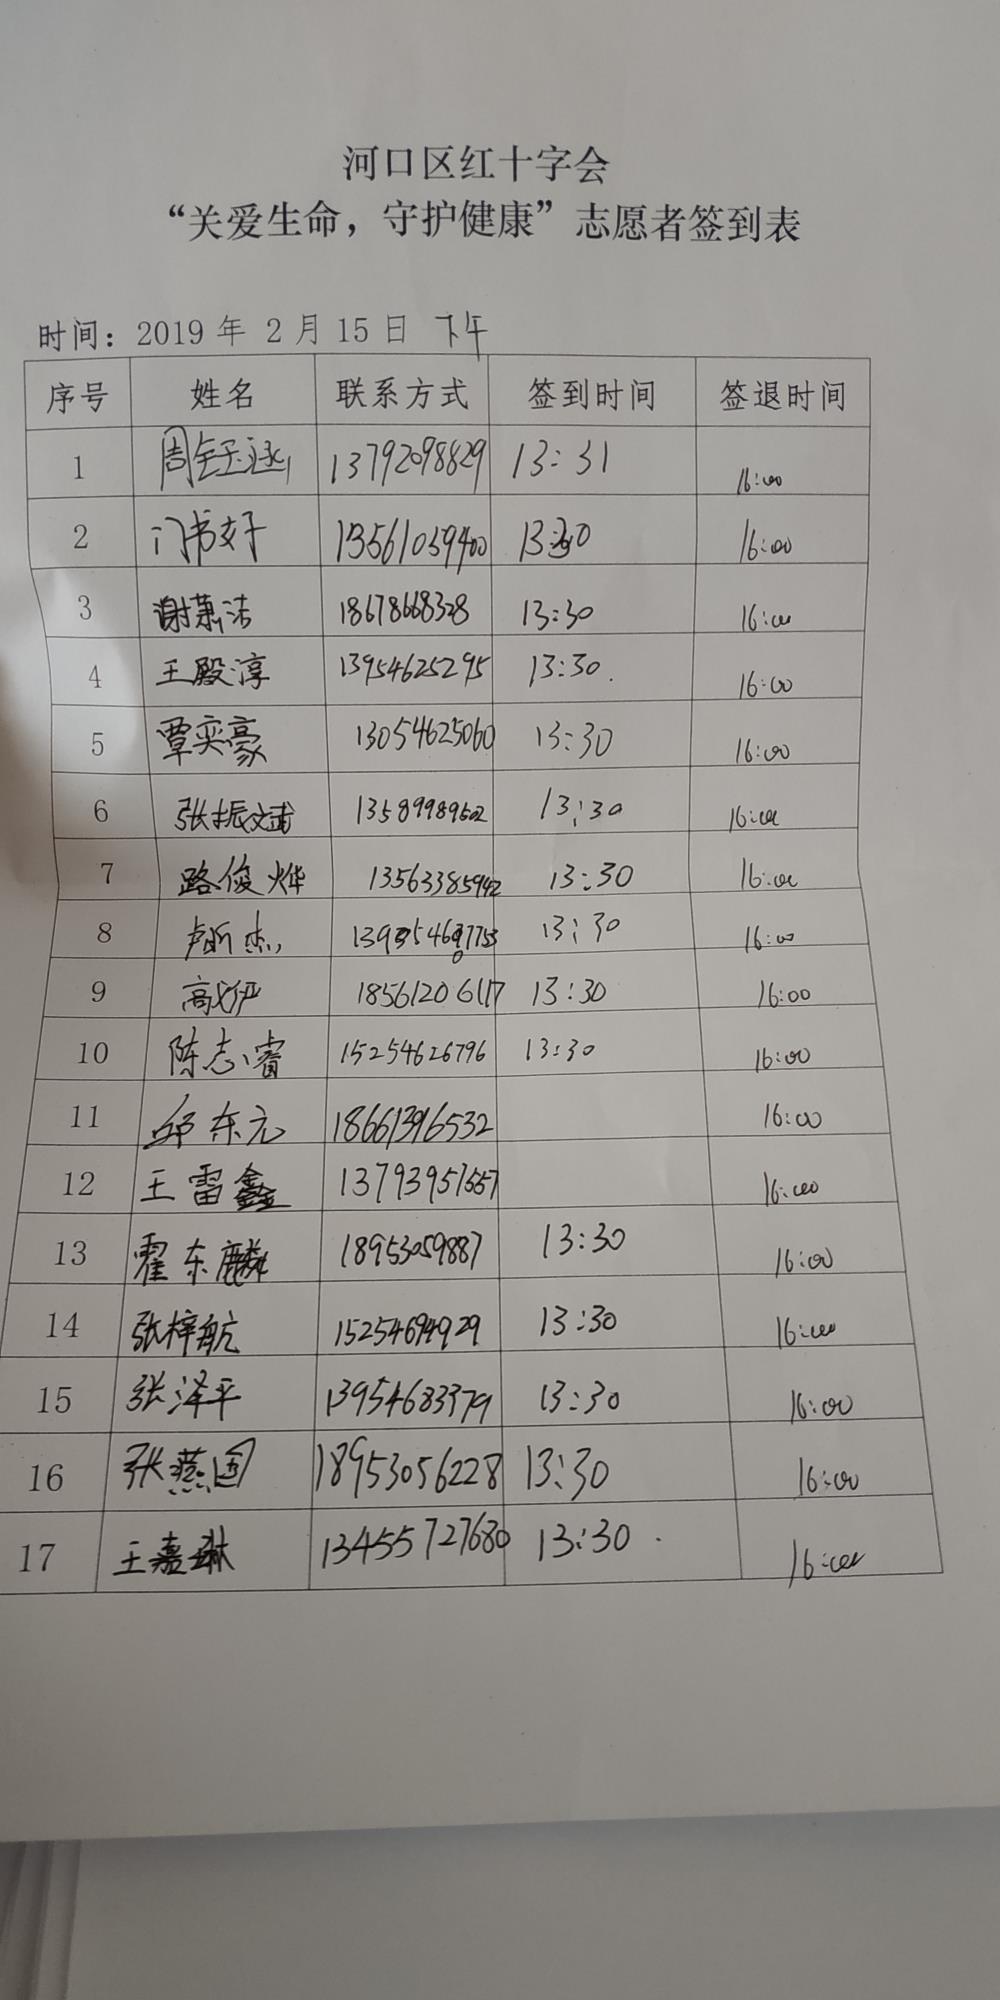 河口区红十字会
“关爱生命，守护健康”志愿者签到表
时间：2019 年 2 月 15 日 下午
序号 姓名 联系方式 签到时间 签退时间
1 周钰涵 13792098829 13:31 16:00
2 门书好 13561059400 13:30 16:00
3 谢萧洁 18678668328 13:30 16:00
4 王殿淳 13954625295 13:30. 16:00
5 覃奕豪 13054625060 13:30 16:00
6 张振斌 13589989502 13:30 16:00
7 路俊烨 13563385942 13:30 16:00
8 卢昕杰 13:30 16:00
9 高伊 18561206117 13:30 16:00
10 陈志睿 15254626796 13:30 16:00
11 邱东元 18661396532 16:00
12 王雷鑫 13793951557 16:00
13 霍东麟 18953059887 13:30 16:00
14 张梓航 15254694929 13:30 16:00
15 张泽平 13954683379 13:30 16:00
16 张燕国 18953056228 13:30 16:00
17 王嘉琳 13455727680 13:30 16:00